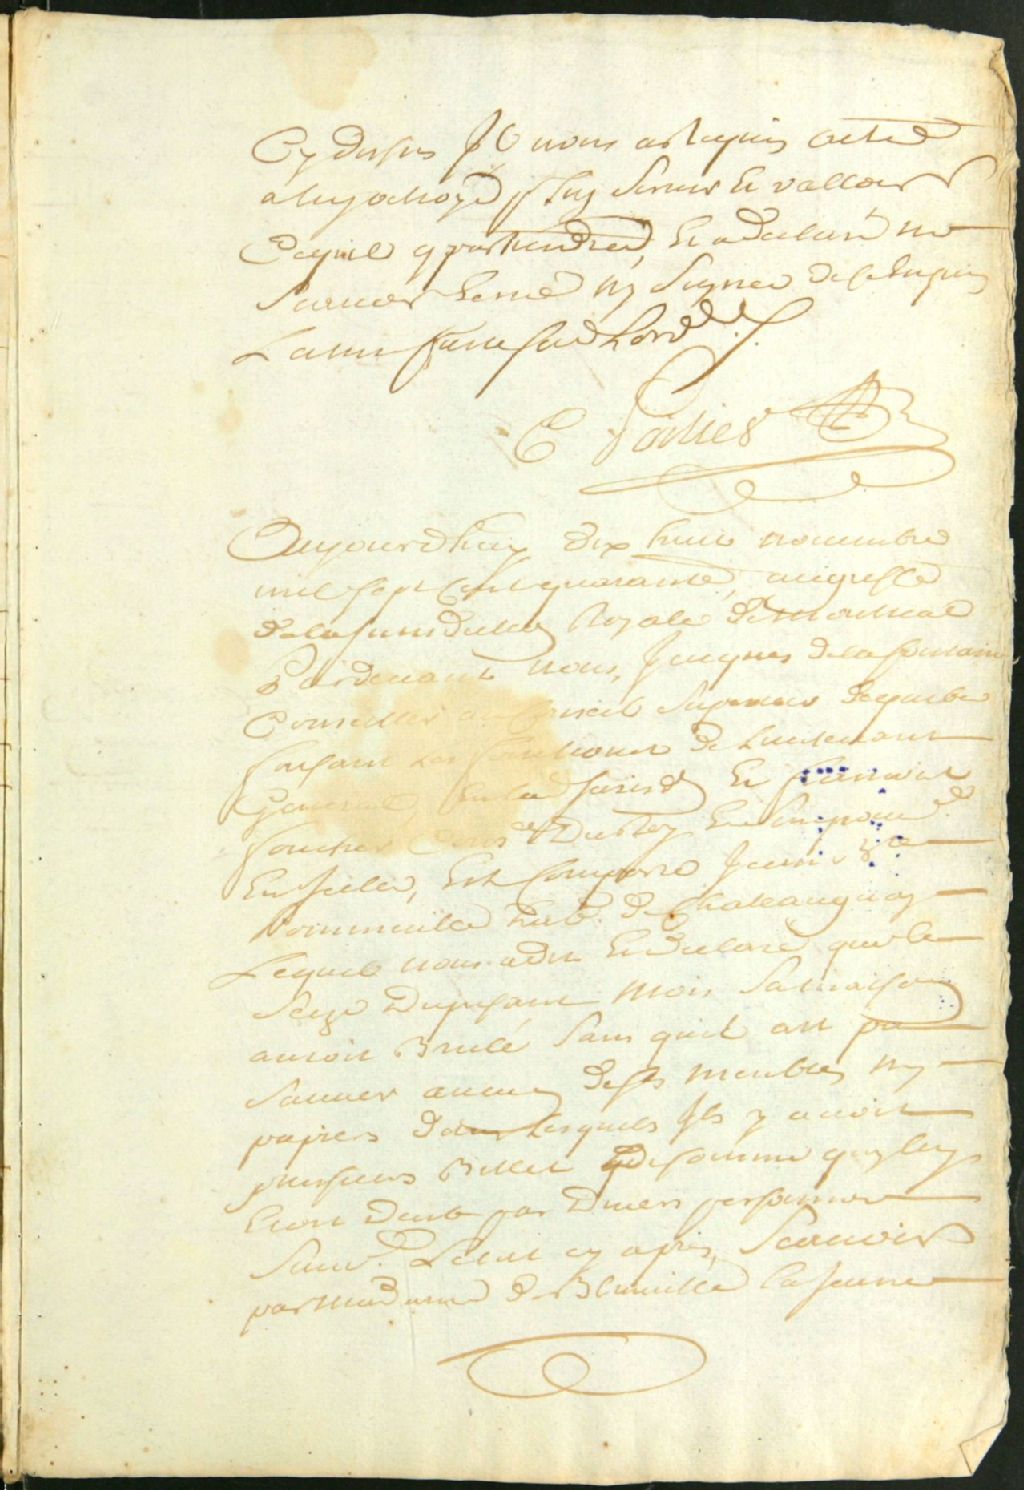 Cy dessus Il nous a requis acte
a luy octroyé p.r luy servir et valloir
Ce qu'il appartiendra, Et a declaré ne
scavoir Ecrire ny signer de ce Enquis
Lecture faite
C Porlier
Aujourdhuy dix huit novembre
mil sept Cent quarante, au greffe
de la Jurisdiction Royale de Montreal
Pardevant nous, Jacques de Lafontaine
Conseiller au Conseil Superieur de quebec
faisant Les fonctions de Lieutenant
General, En lad Jurisd.on Et
foucher Cons.er Du Roy
Est Comparu Jean
hab. de Chateauguay
Lequel nous a dit Et declaré que le
Seize Du present mois sa maison
auroit Brulé sans quil ait pu
sauver aucuns de ses meubles ny
papiers dans lesquels Ils y avoit
plusieurs Billet de somme qui luy
Etoit Deub par Divers personnes
Suiv. Letat cy apres, Scavoir
par Madame de Blainville la Jeune